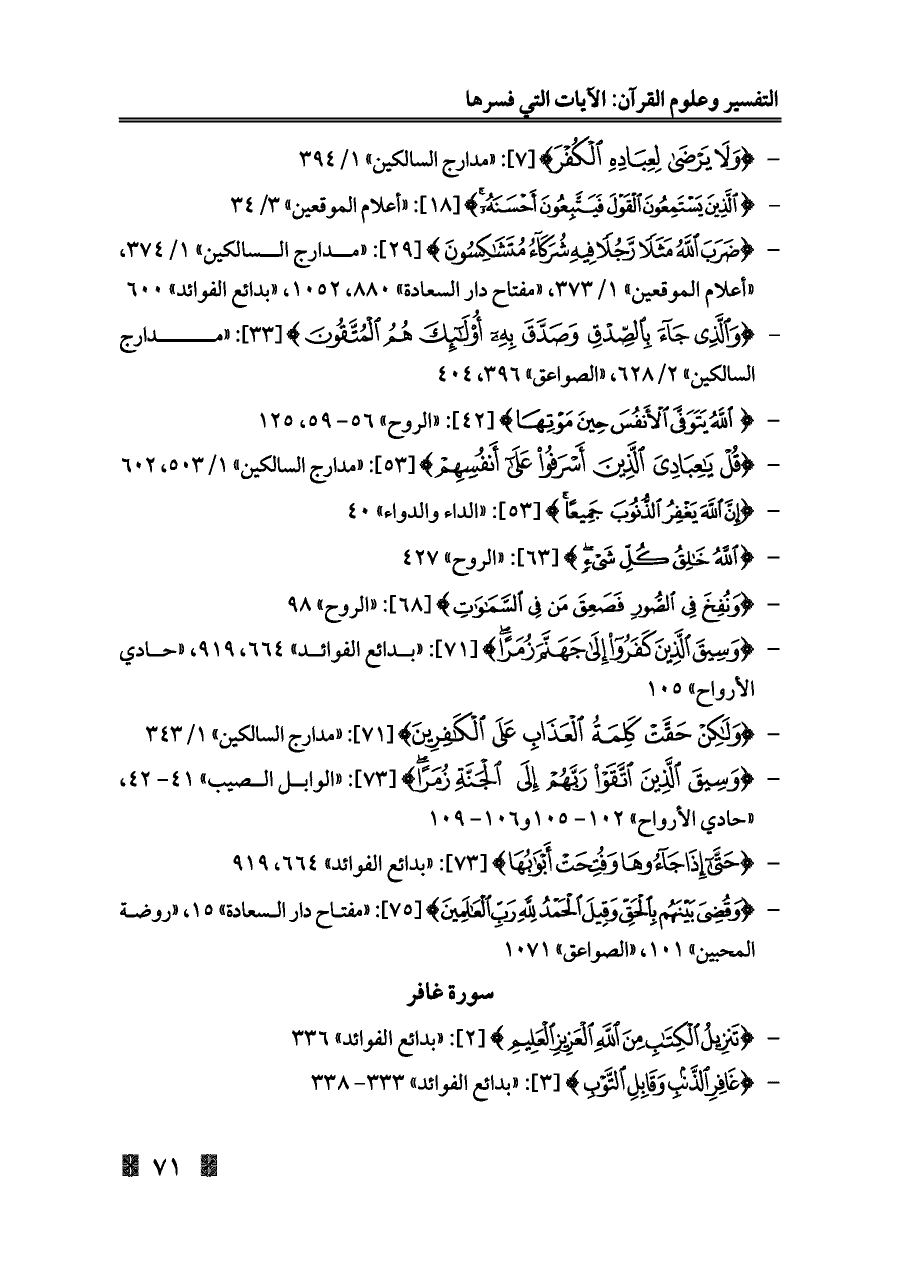 التفسير وعلوم القرآن: الآيات التي فسرها
- ﴿وَلَا يَرْضَىٰ لِعِبَادِهِ ٱلْكُفْرَ﴾ [٧]: «مدارج السالكين» ١/ ٣٩٤
- ﴿ٱلَّذِينَ يَسْتَمِعُونَ ٱلْقَوْلَ فَيَتَّبِعُونَ أَحْسَنَهُۥٓ ۚ﴾ [١٨]: «أعلام الموقعين» ٣/ ٣٤
- ﴿ضَرَبَ ٱللَّهُ مَثَلًا رَّجُلًا فِيهِ شُرَكَآءُ مُتَشَٰكِسُونَ﴾ [٢٩]: «مدارج السالكين» ١/ ٣٧٤،
«أعلام الموقعين» ١/ ٣٧٣، «مفتاح دار السعادة» ٨٨٠، ١٠٥٢، «بدائع الفوائد» ٦٠٠
- ﴿وَٱلَّذِى جَآءَ بِٱلصِّدْقِ وَصَدَّقَ بِهِۦٓ أُو۟لَٰٓئِكَ هُمُ ٱلْمُتَّقُونَ﴾ [٣٣]: «مدارج
السالكين» ٢/ ٦٢٨، «الصواعق» ٣٩٦، ٤٠٤
- ﴿ٱللَّهُ يَتَوَفَّى ٱلْأَنفُسَ حِينَ مَوْتِهَا﴾ [٤٢]: «الروح» ٥٦- ٥٩، ١٢٥
- ﴿قُلْ يَٰعِبَادِىَ ٱلَّذِينَ أَسْرَفُوا۟ عَلَىٰٓ أَنفُسِهِمْ﴾ [٥٣]: «مدارج السالكين» ١/ ٥٠٣، ٦٠٢
- ﴿إِنَّ ٱللَّهَ يَغْفِرُ ٱلذُّنُوبَ جَمِيعًا ۚ﴾ [٥٣]: «الداء والدواء» ٤٠
- ﴿ٱللَّهُ خَٰلِقُ كُلِّ شَىْءٍ ۖ﴾ [٦٣]: «الروح» ٤٢٧
- ﴿وَنُفِخَ فِى ٱلصُّورِ فَصَعِقَ مَن فِى ٱلسَّمَٰوَٰتِ﴾ [٦٨]: «الروح» ٩٨
- ﴿وَسِيقَ ٱلَّذِينَ كَفَرُوٓا۟ إِلَىٰ جَهَنَّمَ زُمَرًا ۖ﴾ [٧١]: «بدائع الفوائد» ٦٦٤، ٩١٩، «حادي
الأرواح» ١٠٥
- ﴿وَلَٰكِنْ حَقَّتْ كَلِمَةُ ٱلْعَذَابِ عَلَى ٱلْكَٰفِرِينَ﴾ [٧١]: «مدارج السالكين» ١/ ٣٤٣
- ﴿وَسِيقَ ٱلَّذِينَ ٱتَّقَوْا۟ رَبَّهُمْ إِلَى ٱلْجَنَّةِ زُمَرًا ۖ﴾ [٧٣]: «الوابل الصيب» ٤١- ٤٢،
«حادي الأرواح» ١٠٢- ١٠٥ و١٠٦- ١٠٩
- ﴿حَتَّىٰٓ إِذَا جَآءُوهَا وَفُتِحَتْ أَبْوَٰبُهَا﴾ [٧٣]: «بدائع الفوائد» ٦٦٤، ٩١٩
- ﴿وَقُضِىَ بَيْنَهُم بِٱلْحَقِّ وَقِيلَ ٱلْحَمْدُ لِلَّهِ رَبِّ ٱلْعَٰلَمِينَ﴾ [٧٥]: «مفتاح دار السعادة» ١٥، «روضة
المحبين» ١٠١، «الصواعق» ١٠٧١
سورة غافر
- ﴿تَنزِيلُ ٱلْكِتَٰبِ مِنَ ٱللَّهِ ٱلْعَزِيزِ ٱلْعَلِيمِ﴾ [٢]: «بدائع الفوائد» ٣٣٦
- ﴿غَافِرِ ٱلذَّنۢبِ وَقَابِلِ ٱلتَّوْبِ﴾ [٣]: «بدائع الفوائد» ٣٣٣- ٣٣٨
٧١